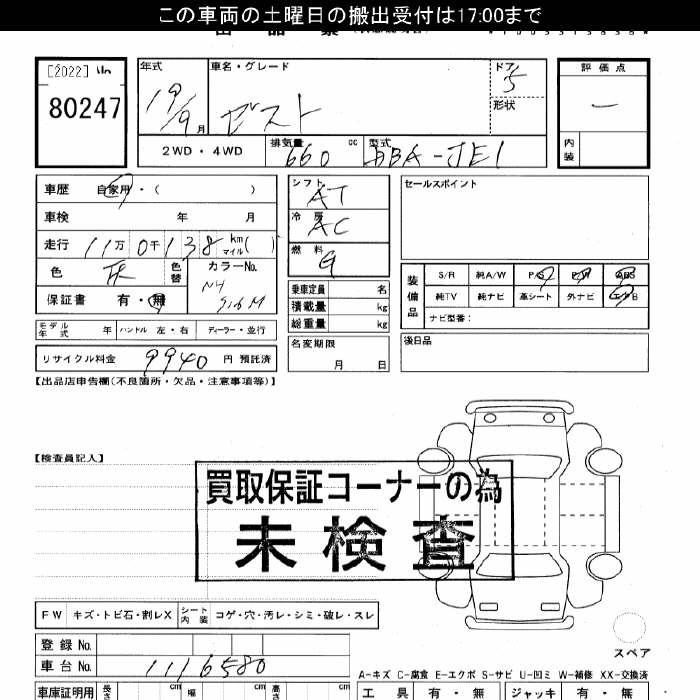 この車両の土曜日の搬出受付は17:00まで
[2022]
80247
年式 19/9 月
車名・グレード ゼスト
ドア 5
形状
評価点 —
内装
2WD・4WD
排気量 660 cc
型式 DBA-JE1
車歴 自家用・( )
車検 年 月
走行 11万 0千 138 km マイル ( )
色 灰
色替
カラーNo. NH 516M
保証書 有・無
シフト AT
冷房 AC
燃料 G
乗車定員 名
積載量 kg
総重量 kg
名変期限 月 日
セールスポイント
装備品
S/R 純A/W P/S P/W ABS
純TV 純ナビ 革シート 外ナビ エアB
ナビ型番:
後日品
モデル年式 年 ハンドル 左・右 ディーラー・並行
リサイクル料金 9940 円 預託済
【出品店申告欄(不良箇所・欠品・注意事項等)】
【検査員記入】
買取保証コーナーの為
未検査
FW キズ・トビ石・割レX シート内装 コゲ・穴・汚レ・シミ・破レ・スレ
登録No.
車台No. 1116580
スペア
A-キズ C-腐食 E-エクボ S-サビ U-凹ミ W-補修 XX-交換済
車庫証明用 長さ cm 幅 cm 高さ cm
工具 有・無 ジャッキ 有・無